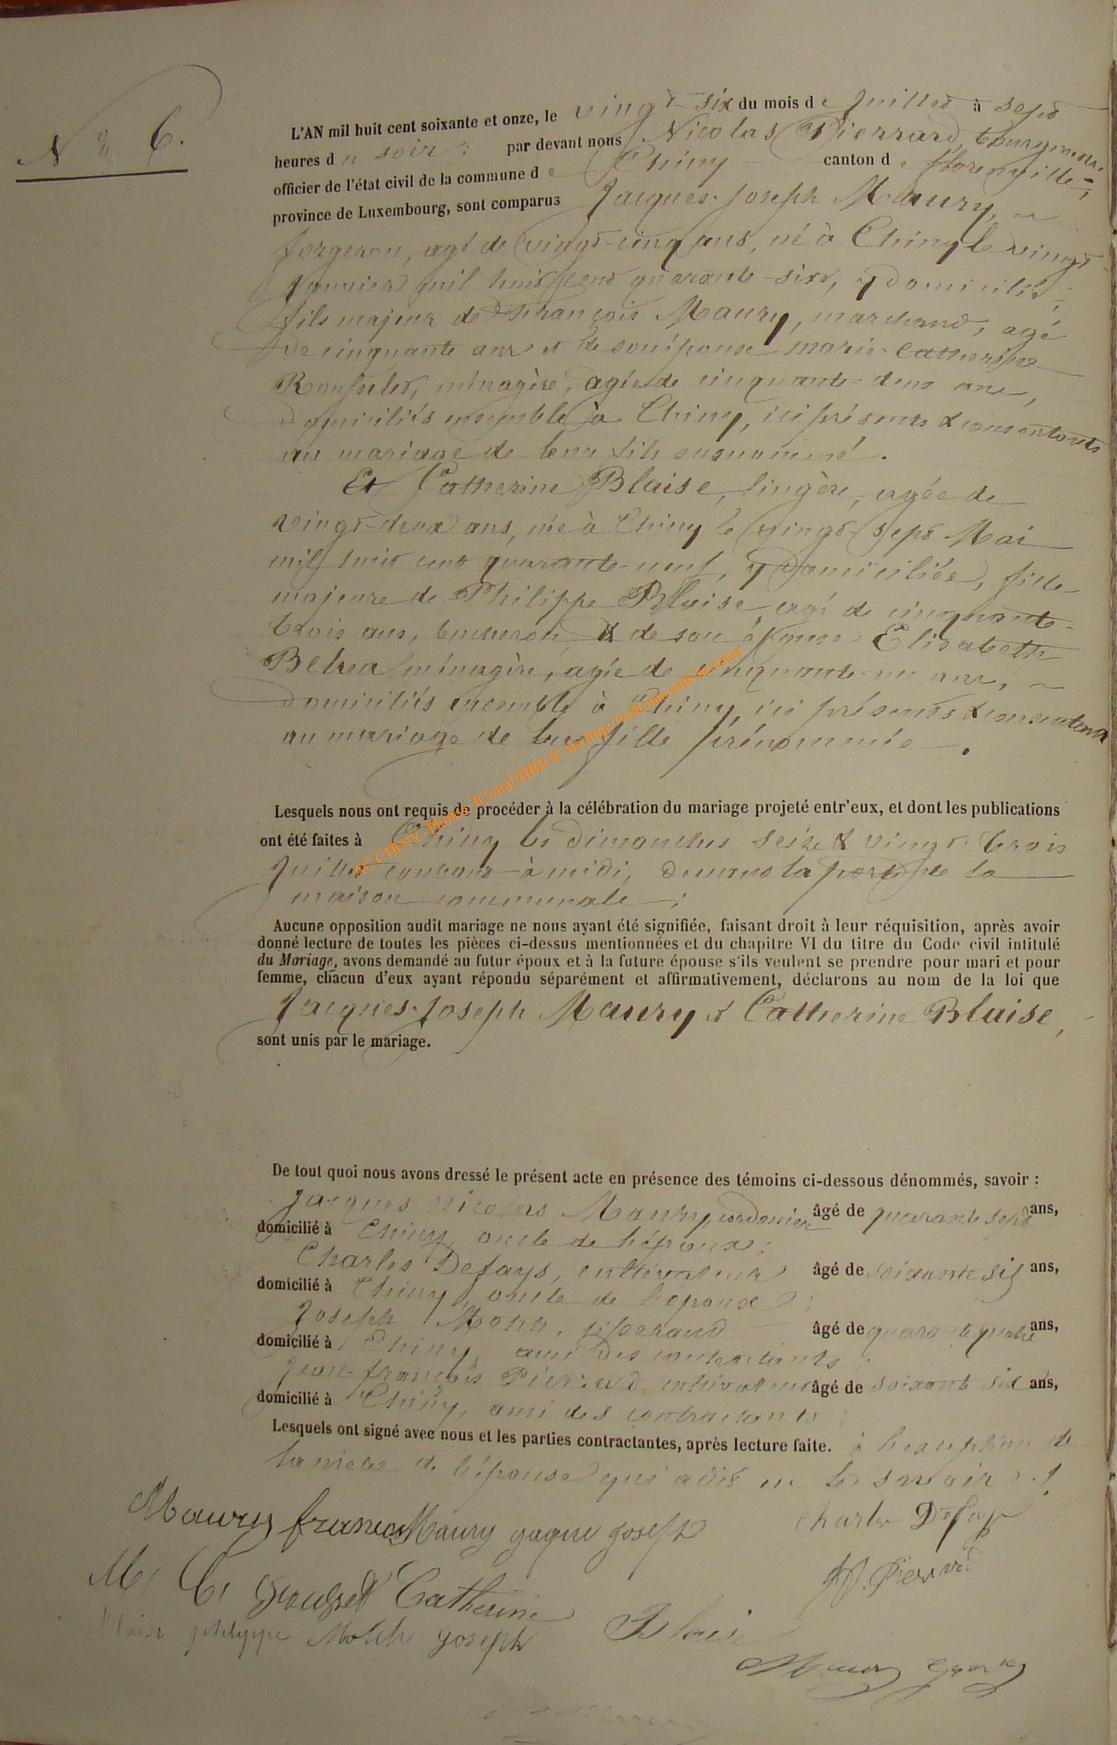 N° 6.
L'AN mil huit cent soixante et onze, le vingt-six du mois de Juillet à sept
heures du soir; par devant nous Nicolas Pierrard, bourgmestre
officier de l'état civil de la commune de Chiny canton de Florenville,
province de Luxembourg, sont comparus Jacques-Joseph Maury,
forgeron, agé de vingt-cinq ans, né à Chiny le vingt
Janvier mil huit cent quarante-six, y domicilié,
fils majeur de François Maury, marchand, agé
de cinquante ans et de son épouse Marie-Catherine
ménagère, agée de cinquante-deux ans,
domiciliés ensemble à Chiny, ici présents & consentants
au mariage de leur fils susnommé.
Et Catherine Blaise, lingère, agée de
vingt-deux ans, née à Chiny le vingt-sept Mai
mil huit cent quarante-neuf, y domiciliée, fille
majeure de Philippe Blaise agé de cinquante-
trois ans, bucheron & de son épouse Elisabeth
ménagère, agée de cinquante-un ans,
domiciliés ensemble à Chiny, ici présents & consentants
au mariage de leur fille prénommée.
Lesquels nous ont requis de procéder à la célébration du mariage projeté entr'eux, et dont les publications
ont été faites à Chiny les dimanches seize & vingt-trois
Juillet courant à midi, devant la porte de la
maison communale;
Aucune opposition audit mariage ne nous ayant été signifiée, faisant droit à leur réquisition, après avoir
donné lecture de toutes les pièces ci-dessus mentionnées et du chapitre VI du titre du Code civil intitulé
du Mariage, avons demandé au futur époux et à la future épouse s'ils veulent se prendre pour mari et pour
femme, chacun d'eux ayant répondu séparément et affirmativement, déclarons au nom de la loi que
Jacques-Joseph Maury & Catherine Blaise,
sont unis par le mariage.
De tout quoi nous avons dressé le présent acte en présence des témoins ci-dessous dénommés, savoir :
Jacques Nicolas Maury, cordonier âgé de quarante sept ans,
domicilié à Chiny, oncle de l'époux;
Charles Defays, cultivateur âgé de soixante six ans,
domicilié à Chiny, oncle de
Joseph âgé de quarante quatre ans,
domicilié à Chiny, ami des contractants
Jean-françois Pierrard, cultivateur âgé de soixante six ans,
domicilié à Chiny, ami des contractants
Lesquels ont signé avec nous et les parties contractantes, après lecture faite. à l'exception de
la mère de l'épouse qui a dit ne le savoir.
Maury Maury Joseph Charles Defays
Catherine Blaise N. Pierrard
Blaise philippe Joseph
Maury